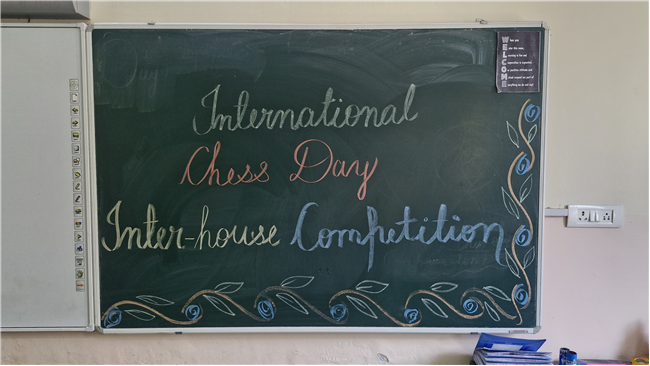 International
Chess Day
Inter-house Competition
WELCOME